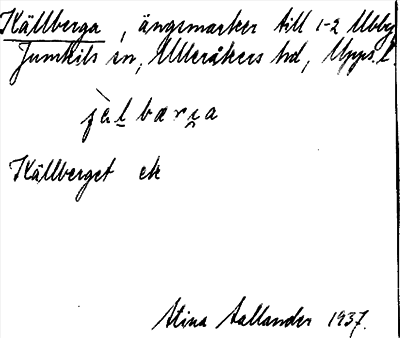 Källberga, ängsmarker till 1-2 Ubby,
Jumkils sn, Ulleråkers hd, Upps. l.
Källberget ek
Stina Sallander 1937.